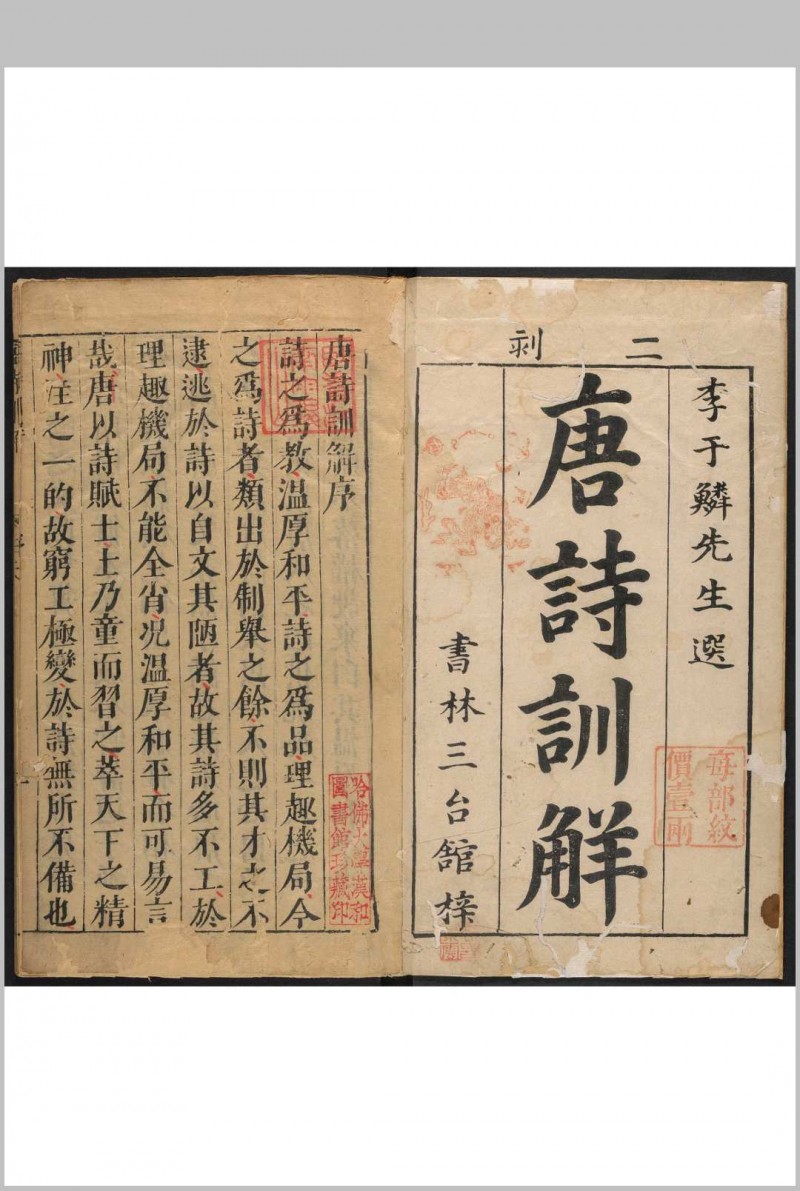 二刻
李于鱗先生選
唐詩訓解
書林三台舘梓
每部紋
價壹兩
唐詩訓解序
詩之爲教溫厚和平詩之爲品理趣機局今
之爲詩者類出於制舉之餘不則其才之不
逮逃於詩以自文其陋者故其詩多不工於
理趣機局不能全省況溫厚和平而可易言
哉唐以詩賦士士乃童而習之萃天下之精
神注之一的故窮工極變於詩無所不備也
哈佛大學漢和
圖書館珍藏印